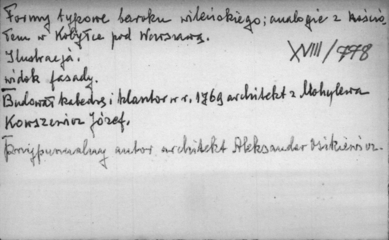 Formy typowe baroku wileńskiego; analogie z kościo-
łem w Kobyłce pod Warszawą.
XVIII/778
Ilustracja.
widok fasady.
Budował katedrę i klasztor w r. 1769 architekt z Mohylewa
Korszeniewicz Józef.
Przypuszczalny autor architekt Aleksander Osikiewicz.